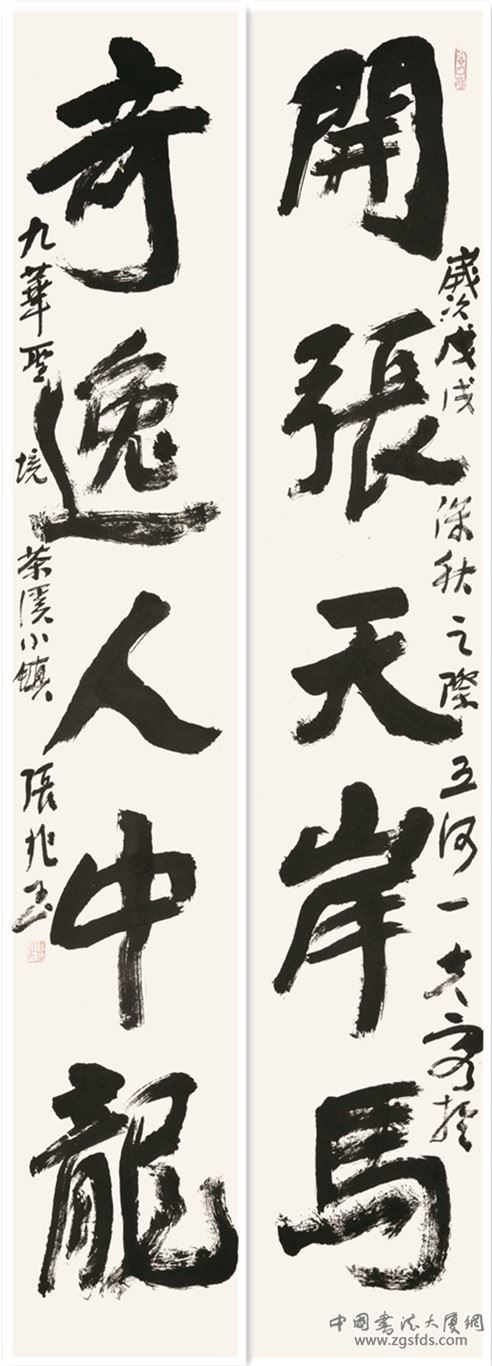 開張天岸馬
歲次戊戌深秋之際五河一夫客於
奇逸人中龍
九華聖境茶溪小鎮張兆玉
中国书法大厦網
www.zgsfds.com